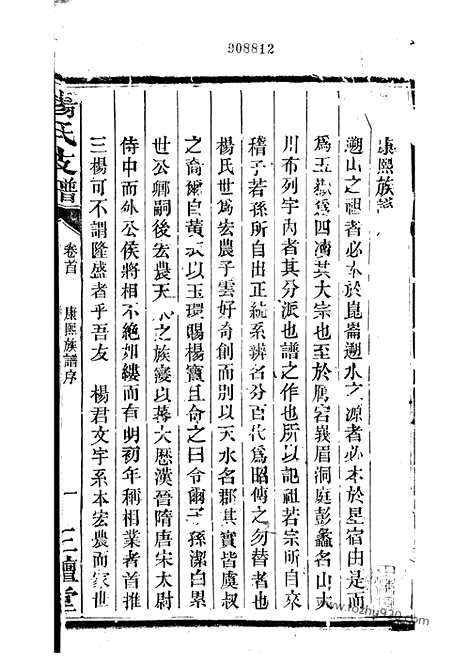 908812
康熙族譜序
遡山之祖者必本於崑崙遡水之源者必本於星宿由是而
爲五嶽爲四瀆其大宗也至於鴈宕峩眉洞庭彭蠡名山大
川布列宇內者其分派也譜之作也所以記祖若宗所自來
稽子若孫所自出正統系辨名分百代爲昭傳之勿替者也
楊氏世爲宏農子雲好奇創而別以天水名郡其實皆虞叔
之裔爾自黃衣以玉環賜楊寶且命之曰令爾子孫潔白累
世公卿嗣後宏農天水之族寖以蕃大歷漢晉隋唐宋太尉
侍中而外公侯將相不絶如縷而有明初年稱相業者首推
三楊可不謂隆盛者乎吾友 楊君文宇系本宏農而家世
楊氏支譜 卷首 康熙族譜序 一 三鱣堂